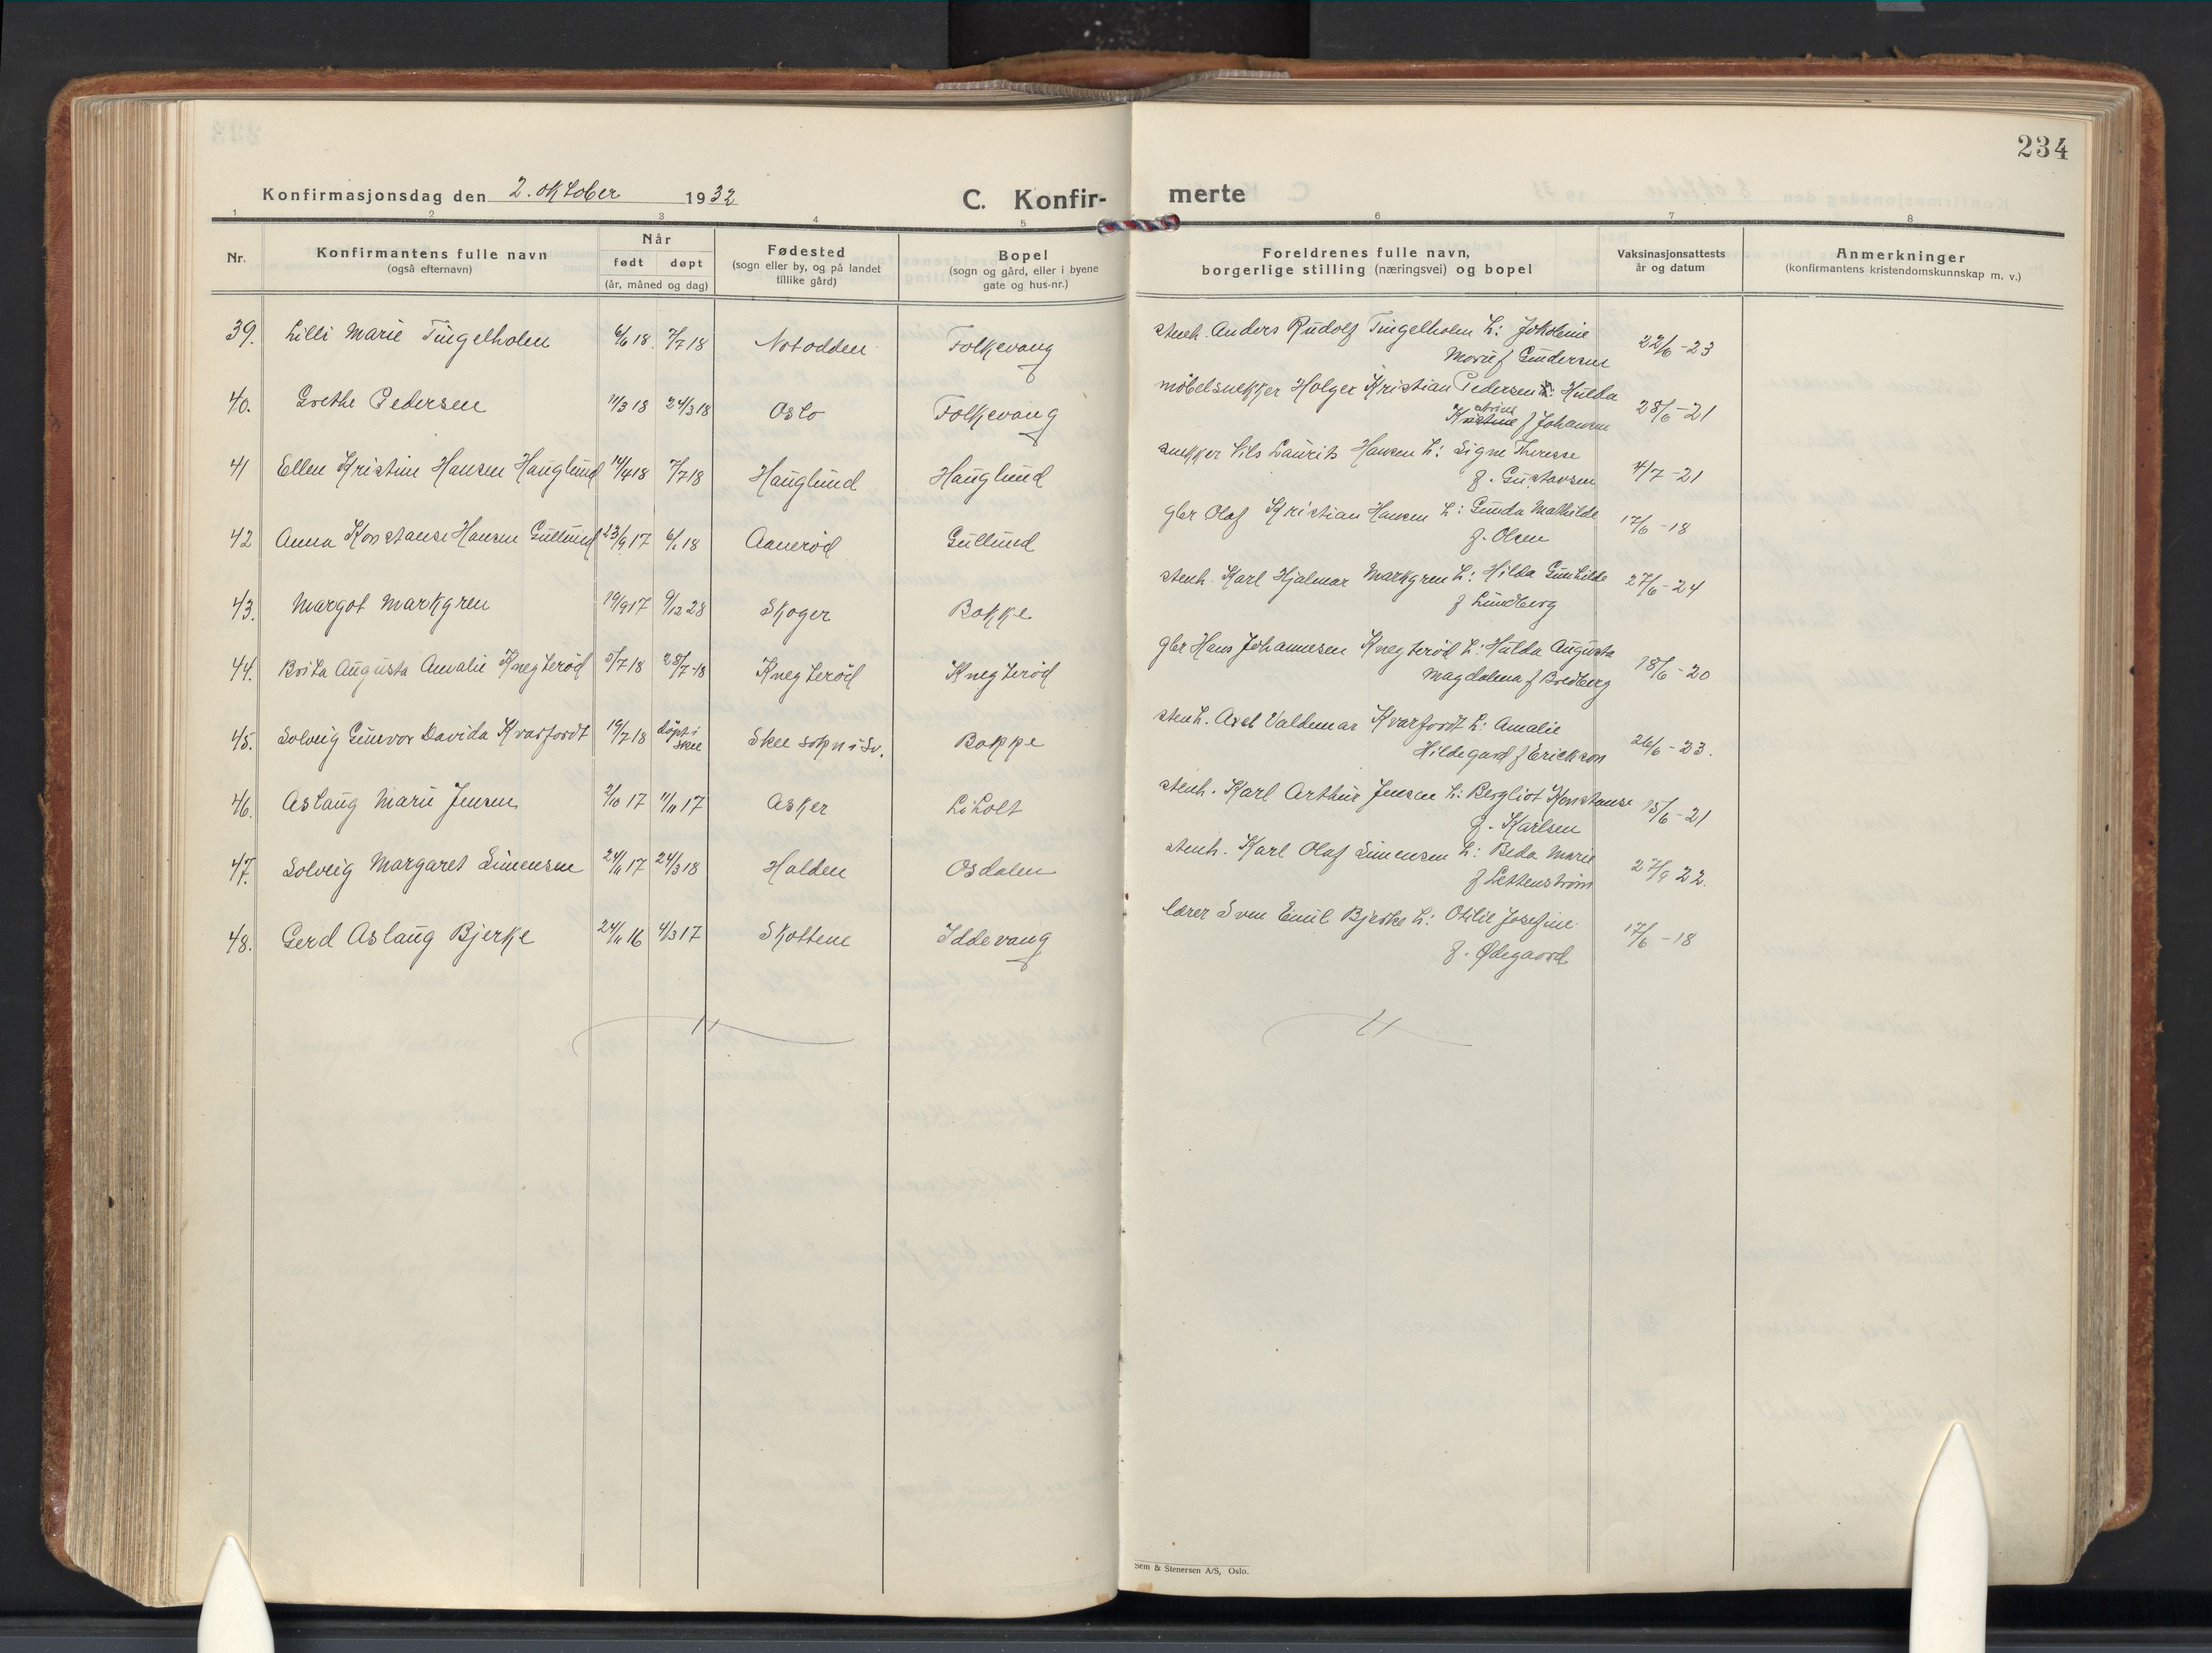 234
Konfirmasjonsdag den 2. oktober 1932
C. Konfir-merte
1 2 3 4 5 6 7 8
Nr.
Konfirmantens fulle navn
(også efternavn)
Når
født døpt
(år, måned og dag)
Fødested
(sogn eller by, og på landet
tillike gård)
Bopel
(sogn og gård, eller i byene
gate og hus-nr.)
Foreldrenes fulle navn,
borgerlige stilling (næringsvei) og bopel
Vaksinasjonsattests
år og datum
Anmerkninger
(konfirmantens kristendomskunnskap m. v.)
39. Lilli Marie Tingelholm 6/6 18 7/7 18 Notodden Folkevang stenh. Anders Rudolf Tingelholm h: Jokolmie
Marie f Gundersen 22/6-23
40. Grethe Pedersen 11/3 18 24/3 18 Oslo Folkevang møbelsnekker Holger Kristian Pedersen h: Hulda
f Johansen 28/6-21
41 Ellen Kristine Hansen Hauglund 14/4 18 7/7 18 Hauglund Hauglund snekker Nils Laurits Hansen h: Signe Therese
f. Gustavsen 4/7-21
42 Anna Konstanse Hansen Gullund 23/9 17 6/1 18 Aanerød Gullund gbr Olaf Kristian Hansen h: Gunda Mathilde
f. Olsen 17/6-18
43. Margot Markgren 19/9 17 9/12 28 Skoger Bakke stenh. Karl Hjalmar Markgren h: Hilda Gunhilde
f Lundberg 27/6-24
44. Brita Augusta Amalie Knegterød 5/7 18 28/7-18 Knegterød Knegterød gbr Hans Johannesen Knegterød h: Hulda Augusta
Magdalena f Bredberg 18/6-20
45. Solveig Gunvor Davida Kvarfordt 19/7 18 døpt i
Skee Skee sokn i Sv. Bakke stenh. Axel Valdemar Kvarfordt h: Amalie
Hildegard f Erickson 26/6-23.
46. Aslaug Marie Jensen 2/10 17 11/11 17 Asker Liholt stenh. Karl Arthur Jensen h: Bergliot Konstanse
f. Karlsen 15/6-21
47. Solveig Margaret Simensen 24/11 17 24/3 18 Halden Osdalen stenh. Karl Olaf Simensen h: Beda Marie
f Lettenstrøm 27/9 22.
48. Gerd Aslaug Bjerke 24/11 16 4/3 17 Skottene Iddevang lærer Sven Emil Bjerke h: Otilie Josefine
f. Ødegaard 17/6-18
Sem & Stenersen A/S, Oslo.